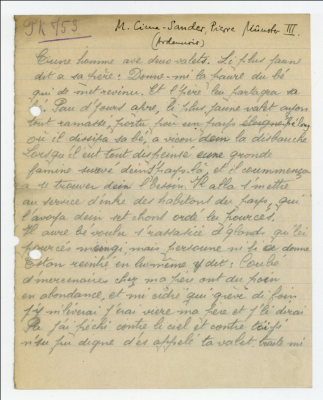 TK 753
M. Cima-Sander, Pierre Münster III.
(Ardennois)
Eune homme ave deus valets. Le plus jaun
dit a sa père: Donne-mi la pourt du bé
qui de met revinre. Et l'père leu partagea sa
bé. Pau d'jours aprè, le plus jaune valet ayon
tout ramassè, partu pour un payis
où il dissipa sa bé, a vican den la disbauche
Lorsqu'il eut tout dispensé eune gronde
famine surve deins l'payis là, et il coummença
a s' trouver dein l'besun. Il alla s'mettre
au service d'inke des habitons du payis, qui
l'avoya dein set chons orde les pourcés.
Il aure be voulu s'rassasiè d'glond, qu'lè
pourcés mengi, mais persoune ni li donne
Eston rentré en lu même y dit: Coubé
d'mercenaires chez ma pére ont du pain
en abondance, et mi ichè qui grève di faim
J'm'lèverai j'irai viere ma père et j'lè dirai
Pa j'ai péchi contre le ciel et contre ti
n'su pu digne d'ès appelé ta valet. traite mi